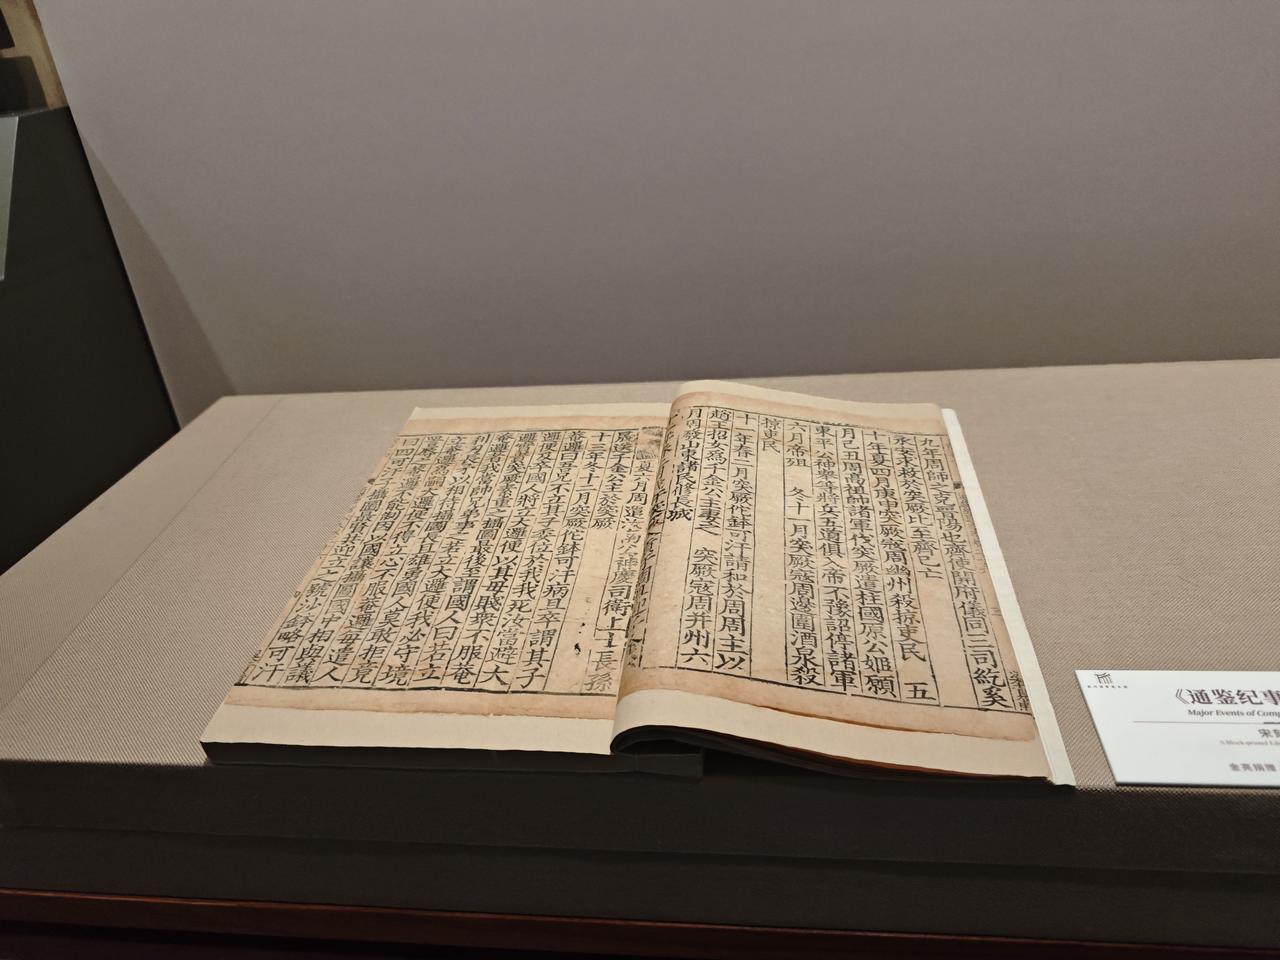 九年周師之克晉陽也齊使開府儀同三司紇奚
永安求救於突厥比至齊已亡
十年夏四月庚申突厥寇周幽州殺掠吏民　五
月己丑周高祖帥諸軍伐突厥遣柱國原公姬願
東平公神舉等將兵五道俱入帝不豫詔停諸軍
六月帝殂　冬十一月突厥寇周邊圍酒泉殺
掠吏民
十一年春二月突厥佗鉢可汗請和於周周主以
趙王招女為千金公主妻之　突厥寇周并州六
月周發山東諸民修長城
夏六月周遣汝南公神慶司衛上士長孫
晟送千金公主於突厥
十三年冬十二月突厥佗鉢可汗病且卒謂其子
菴邏曰吾兄不立其子委位於我我死汝當避大
邏便及卒國人將立大邏便以其母賤衆不服菴
邏實貴突厥素重之攝圖最後至謂國人曰若立
菴邏者我當帥兄弟事之若立大邏便我必守境
利刃長矛以相待攝圖長且雄勇國人莫敢拒竟
立菴邏為嗣大邏便不得立心不服菴邏每遣人
詈辱之菴邏不能制因以國讓攝圖國中相與議
曰四可汗子攝圖最賢共迎立之號沙鉢略可汗
《通鉴纪事
Major Events of Comp
金亮捐赠